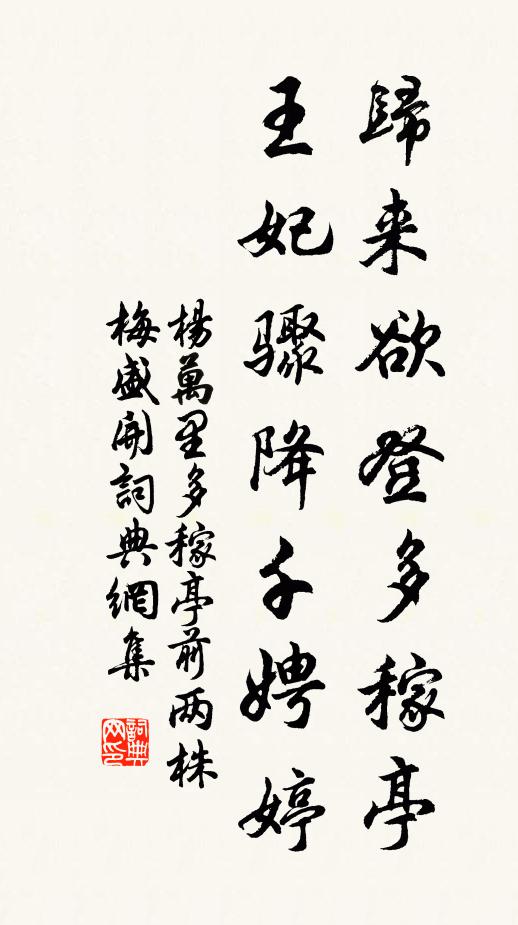 歸来欲登多稼亭
王妃驟降千娉婷
楊萬里多稼亭前两株
梅盛開詞典網集
詞典网印